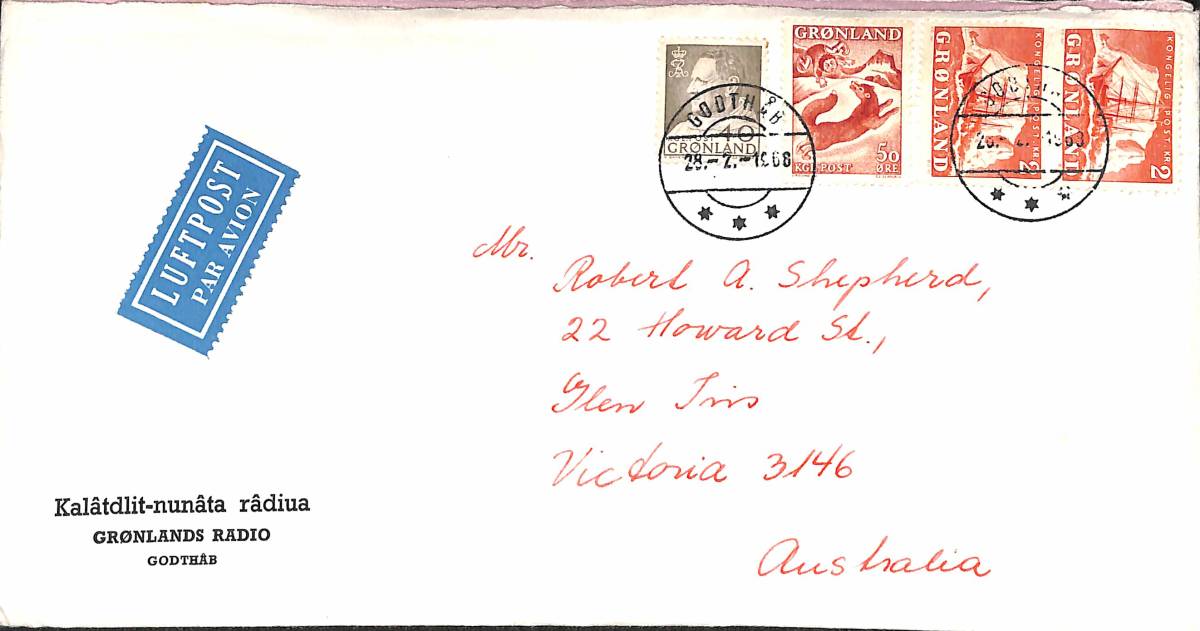 40
GRØNLAND
GRØNLAND
50
KGL. POST ØRE
GRØNLAND
KONGELIG POST. KR
2
GRØNLAND
KONGELIG. POST. KR.
2
GODTHÅB
28.-2.-1968
LUFTPOST
PAR AVION
Mr.
Robert A. Shepherd,
22 Howard St.,
Glen Iris
Victoria 3146
Australia
Kalâtdlit-nunâta râdiua
GRØNLANDS RADIO
GODTHÅB